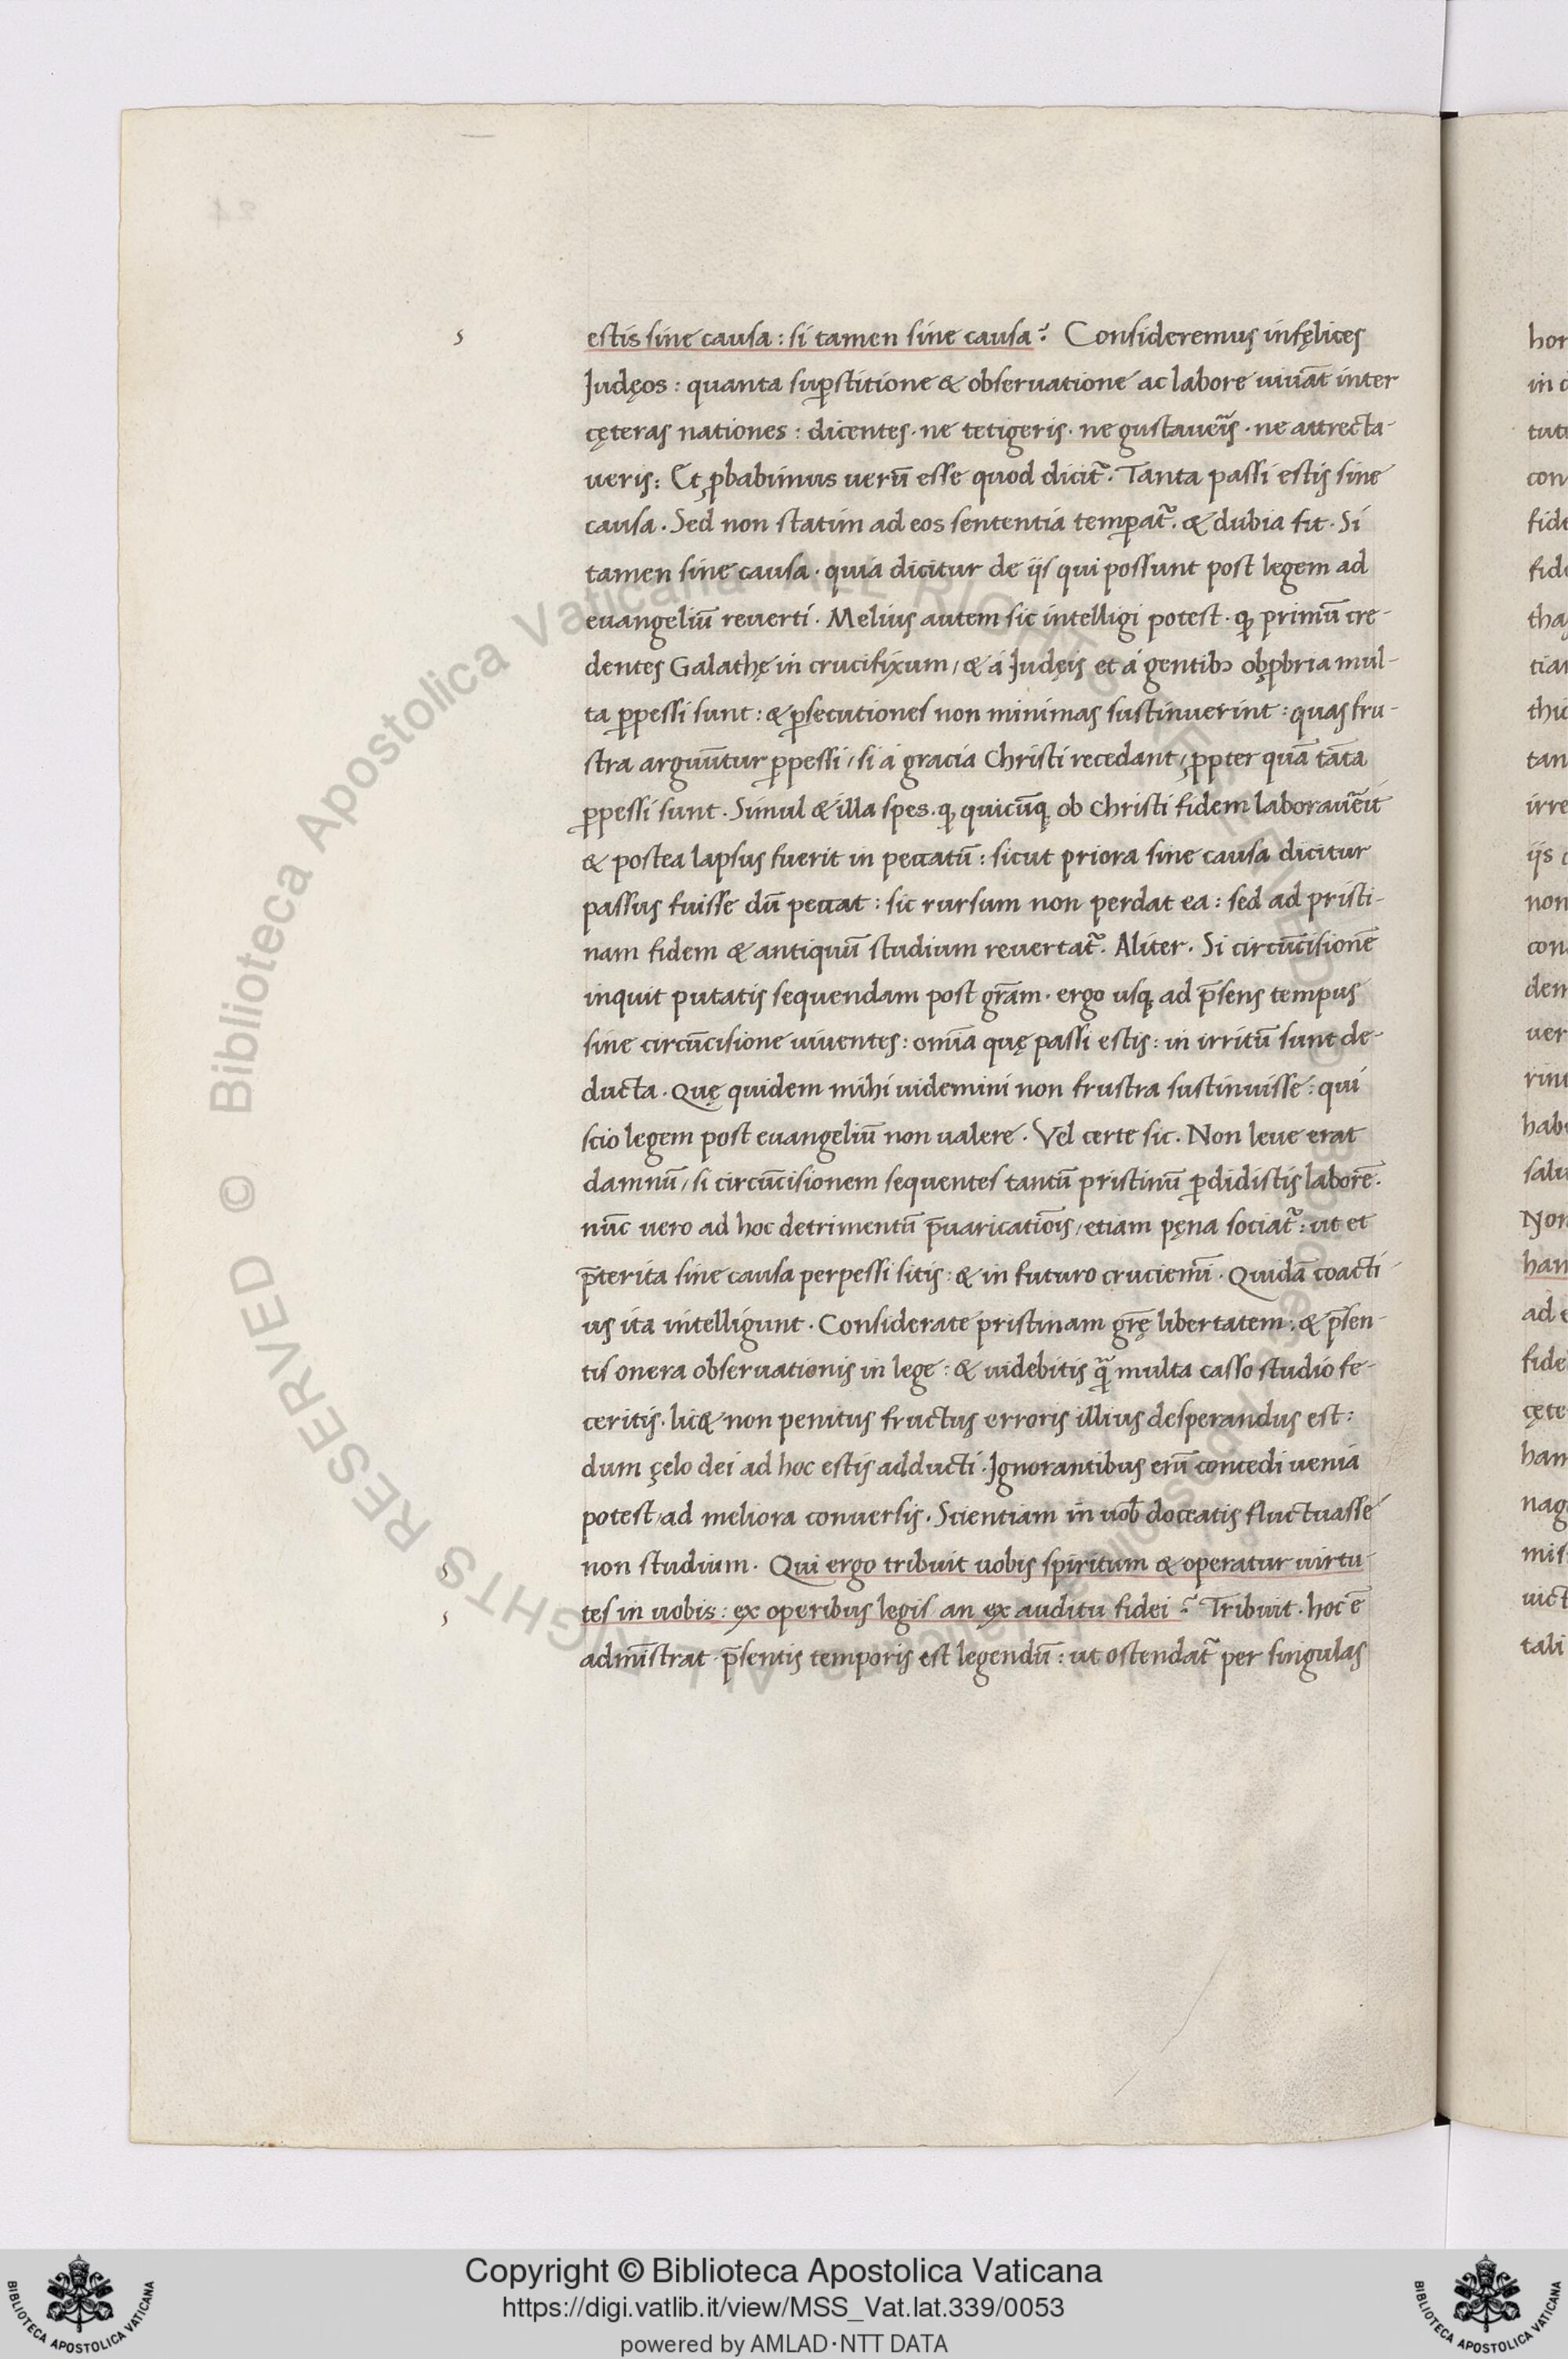 estis sine causa : si tamen sine causa? Consideremus infęlices
Judęos : quanta suꝑstitione & obseruatione ac labore uiuāt inter
cęteras nationes : dicentes · ne tetigeris · ne gustaueīs · ne attrecta-
ueris : Et ꝓbabimus uerū esse quod dicit᷑ · Tanta passi estis sine
causa . Sed non statim ad eos sententia temꝑat᷑ · & dubia fit · Si
tamen sine causa · quia dicitur de ijs qui possunt post legem ad
euangeliū reuerti · Melius autem sic intelligi potest · ꝙ primū cre-
dentes Galathę in crucifixum / & á Judęis et á gentibꝫ obꝓbria mul-
ta ꝑpessi sunt : & ꝑsecutiones non minimas sustinuerint : quas fru-
stra arguūtur ꝑpessi / si á gracia Christi recedant / ꝓpter quā tāta
ꝑpessi sunt . Simul & illa spes · ꝙ quicūqꝫ ob Christi fidem laborauēit
& postea lapsus fuerit in peccatū : sicut priora sine causa dicitur
passus fuisse dū peccat : sic rursum non perdat ea : sed ad pristi-
nam fidem & antiquū studium reuertat᷑ · Aliter · Si circūcisionē
inquit putatis sequendam post grām · ergo usqꝫ ad p̄sens tempus
sine circūcisione uiuentes : omīa quę passi estis : in irritū sunt de-
ducta . Quę quidem mihi uidemini non frustra sustinuisse : qui
scio legem post euangeliū non ualere · Vel certe sic · Non leue erat
damnū / si circūcisionem sequentes tantū pristinū ꝑdidistis laborē ·
nūc uero ad hoc detrimentū p̄uaricatiōis / etiam pęna sociat᷑ : ut et
p̄terita sine causa perpessi sitis : & in futuro cruciemī · Quidā coacti-
us ita intelligunt · Considerate pristinam grę̄ libertatem : & p̄sen-
tis onera obseruationis in lege : & uidebitis qᷓ multa casso studio fe-
ceritis · lic& non penitus fructus erroris illius desperandus est :
dum çelo dei ad hoc estis adducti · Ignorantibus enī concedi uenia
potest / ad meliora conuersis . Scientiam in̄ uob̄ doceatis fluctuasse
non studium · Qui ergo tribuit uobis spiritum & operatur uirtu-
tes in uobis : ex operibus legis an ex auditu fidei ? Tribuit · hoc ē
adm̄istrat · p̄sentis temporis est legendū : ut ostendat᷑ per singulas
Copyright © Biblioteca Apostolica Vaticana
https://digi.vatlib.it/view/MSS_Vat.lat.339/0053
powered by AMLAD·NTT DATA